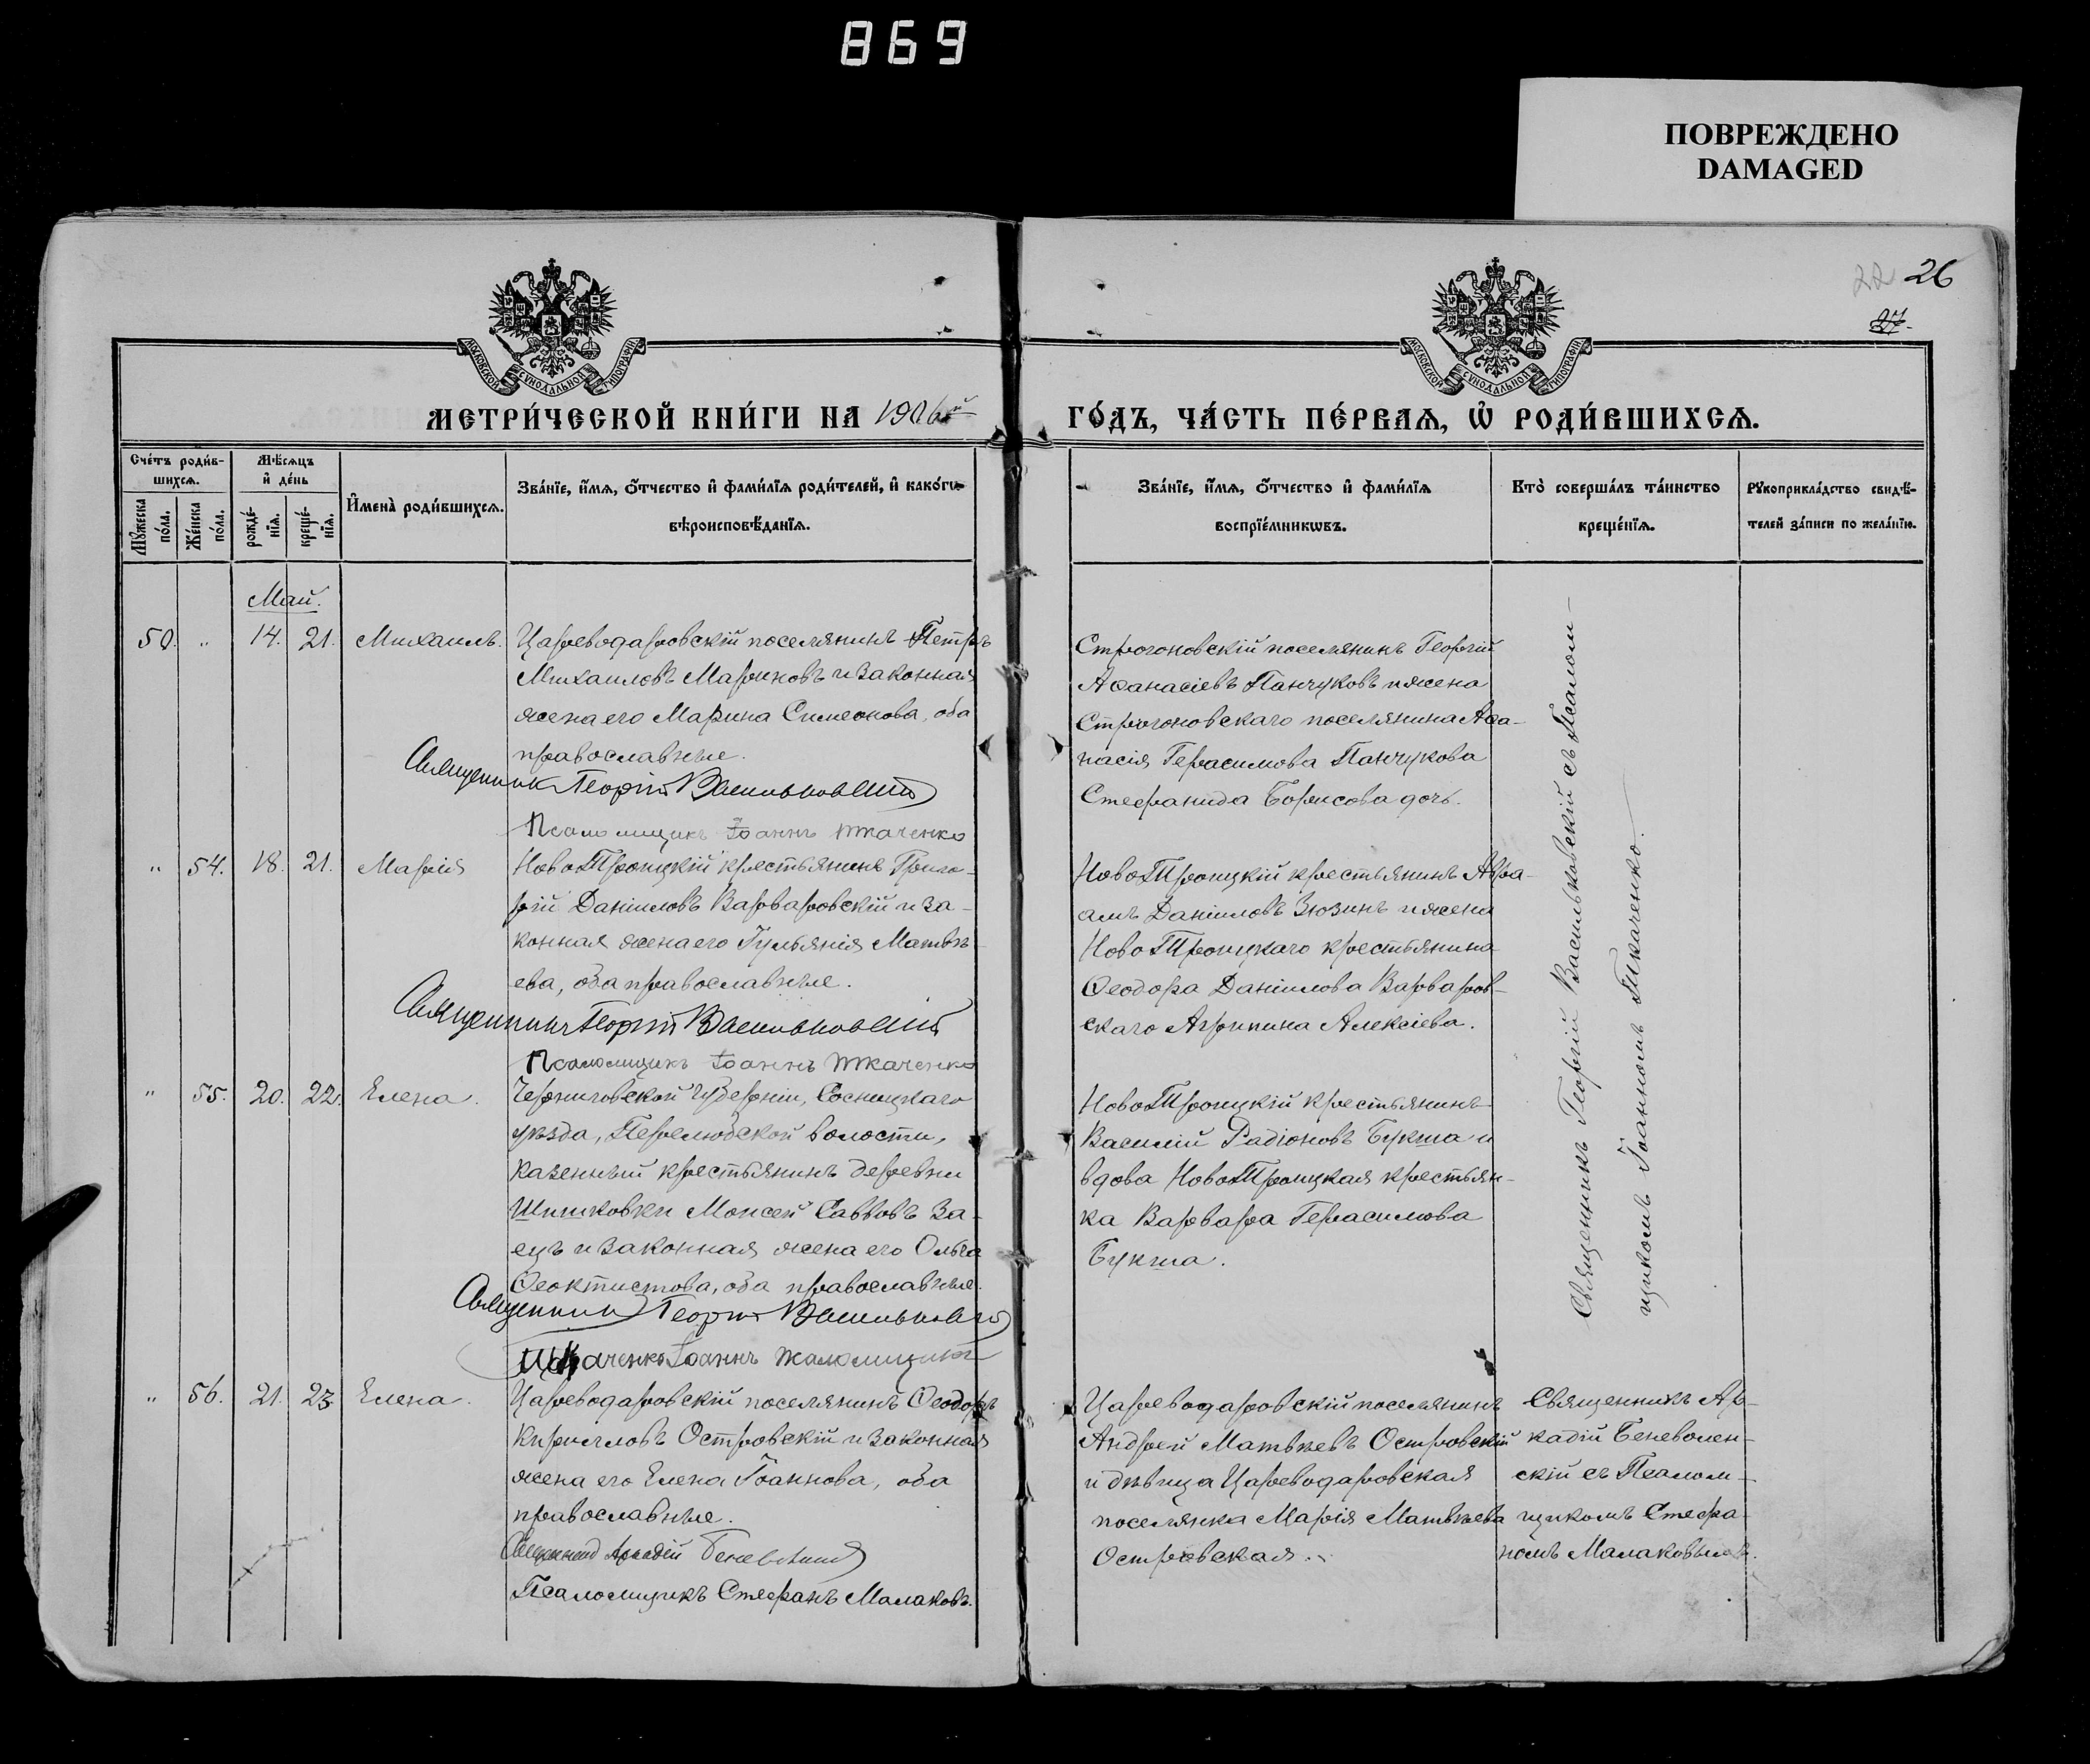 869
ПОВРЕЖДЕНО
DAMAGED
22 26
27.
МОСКОВСКОЙ СѴНОДАЛЬНОЙ ТИПОГРАФІИ
МОСКОВСКОЙ СѴНОДАЛЬНОЙ ТИПОГРАФІИ
МЕТРИ́ЧЕСКОЙ КНИ́ГИ НА 1906й
ГО́ДЪ, ЧА́СТЬ ПЕ́РВАѦ, Ѡ҆ РОДИ́ВШИХСѦ.
Сче́тъ роди́в-
шихсѧ.
Мѣ́сѧцъ
и҆ де́нь
Мꙋ́жеска
по́ла.
Же́нска
по́ла.
рожде́-
нїѧ.
креще́-
нїѧ.
И҆мена̀ роди́вшихсѧ.
Зва́нїе, и҆́мѧ, о҆́тчество и҆ фами́лїѧ роди́телей, и҆ како́гѡ
вѣроисповѣ́данїѧ.
Зва́нїе, и҆́мѧ, о҆́тчество и҆ фами́лїѧ
воспрїе́мникѡвъ.
Кто̀ соверша́лъ та́инство
креще́нїѧ.
Рꙋкоприкла́дство свидѣ́-
телей за́писи по жела́нїю.
Май.
50. " 14. 21. Михаилъ.
Цареводаровскій поселянинъ Петръ
Михаиловъ Мариновъ и законная
жена его Марина Симеонова, оба
православные.
Священникъ Георгій Васильковскій
Псаломщикъ Іоаннъ Ткаченко
Строгоновскій поселянинъ Георгій
Аѳанасіевъ Панчуковъ и жена
Строгоновскаго поселянина Аѳа-
насія Герасимова Панчукова
Стефанида Борисова дочь.
" 54. 18. 21. Марія
НовоТроицкій крестьянинъ Григо-
рій Даніиловъ Варваровскій и за-
конная жена его Іуліанія Матвѣ-
ева, оба православные.
Священникъ Георгій Васильковскій
Псаломщикъ Іоаннъ Ткаченко
НовоТроицкій крестьянинъ Авра-
амъ Даніиловъ Зюзинъ и жена
НовоТроицкаго крестьянина
Ѳеодора Даніилова Варваров-
скаго Агрипина Алексіева.
" 55. 20. 22. Елена.
Черниговской губерніи, Сосницкаго
уѣзда, Перелюбской волости,
казенный крестьянинъ деревни
Шишковки Моисей Савовъ За-
ецъ и законная жена его Ольга
Ѳеоктистова, оба православные.
Священникъ Георгій Васильковскій
Ткаченко Іоаннъ Псаломщикъ
НовоТроицкій крестьянинъ
Василій Радіоновъ Букша и
вдова НовоТроицкая крестьян-
ка Варвара Герасимова
Букша.
Священникъ Георгій Васильковскій съ Псалом-
щикомъ Іоанномъ Ткаченко.
" 56. 21. 23. Елена.
Цареводаровскій поселянинъ Ѳеодоръ
Кирилловъ Островскій и законная
жена его Елена Іоаннова, оба
православные.
Священникъ Аркадій Беневоленскій
Псаломщикъ Стефанъ Малаковъ.
Цареводаровскій поселянинъ
Андрей Матвѣевъ Островскій
и дѣвица Цареводаровская
поселянка Марія Матвѣева
Островская.
Священникъ Ар-
кадій Беневолен-
скій съ Псалом-
щикомъ Стефа-
номъ Малаковымъ.